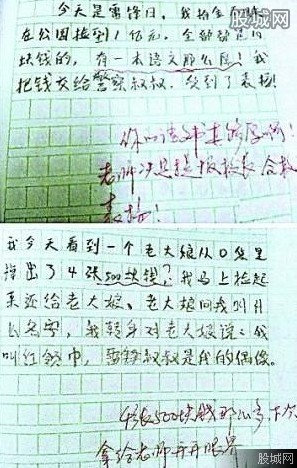 股城网
今天是雷锋日，我和金
在公园捡到1亿元，全部都是10
块钱的，有一本语文那么厚！我
把钱交给警察叔叔，受到了表扬！
你的语文书真够厚啊！
老师决定提报校长 给放
表扬！
我今天看到一个老大娘从口袋里
掉出了4张500块钱？我马上捡起
来还给老大娘。老大娘问我叫什
么名字，我转身对老大娘说：我
叫红领巾，雷锋叔叔是我的偶像。
4张500块钱那么多 下次
拿给老师开开眼界
股城网